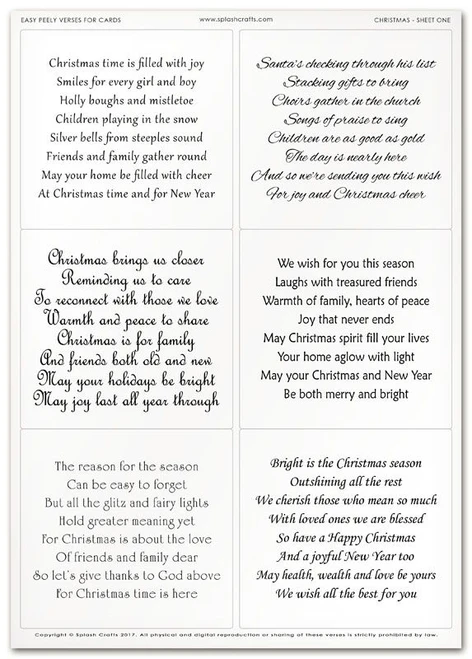 EASY PEELY VERSES FOR CARDS
www.splashcrafts.com
CHRISTMAS - SHEET ONE
Christmas time is filled with joy
Smiles for every girl and boy
Holly boughs and mistletoe
Children playing in the snow
Silver bells from steeples sound
Friends and family gather round
May your home be filled with cheer
At Christmas time and for New Year
Santa's checking through his list
Stacking gifts to bring
Choirs gather in the church
Songs of praise to sing
Children are as good as gold
The day is nearly here
And so we're sending you this wish
For joy and Christmas cheer
Christmas brings us closer
Reminding us to care
To reconnect with those we love
Warmth and peace to share
Christmas is for family
And friends both old and new
May your holidays be bright
May joy last all year through
We wish for you this season
Laughs with treasured friends
Warmth of family, hearts of peace
Joy that never ends
May Christmas spirit fill your lives
Your home aglow with light
May your Christmas and New Year
Be both merry and bright
The reason for the season
Can be easy to forget
But all the glitz and fairy lights
Hold greater meaning yet
For Christmas is about the love
Of friends and family dear
So let's give thanks to God above
For Christmas time is here
Bright is the Christmas season
Outshining all the rest
We cherish those who mean so much
With loved ones we are blessed
So have a Happy Christmas
And a joyful New Year too
May health, wealth and love be yours
We wish all the best for you
Copyright © Splash Crafts 2017. All physical and digital reproduction or sharing of these verses is strictly prohibited by law.